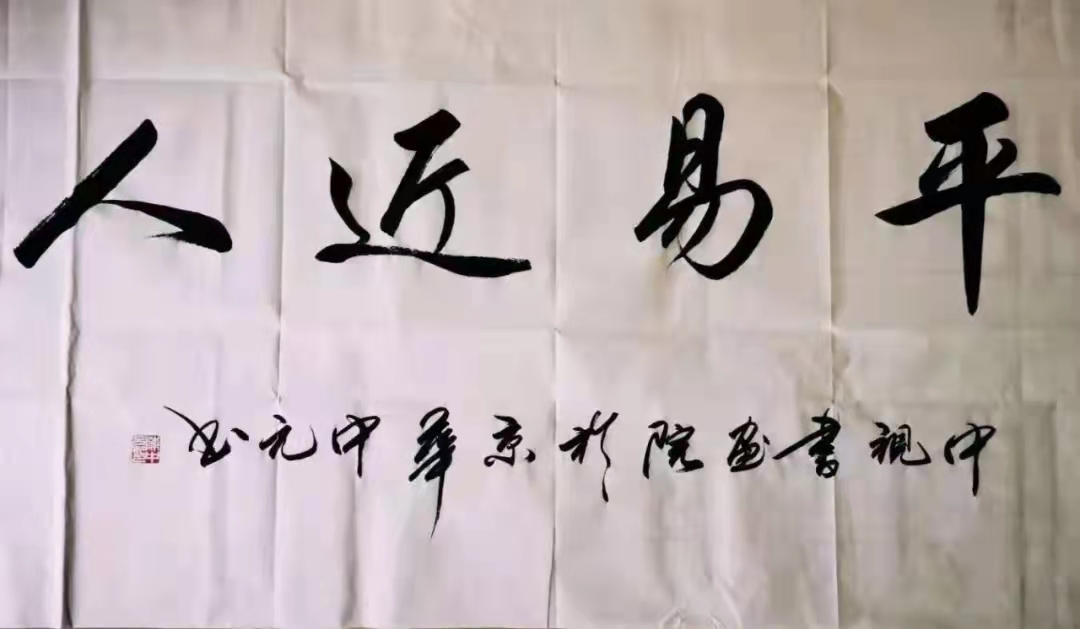 平易近人
中視書画院於京華中元书